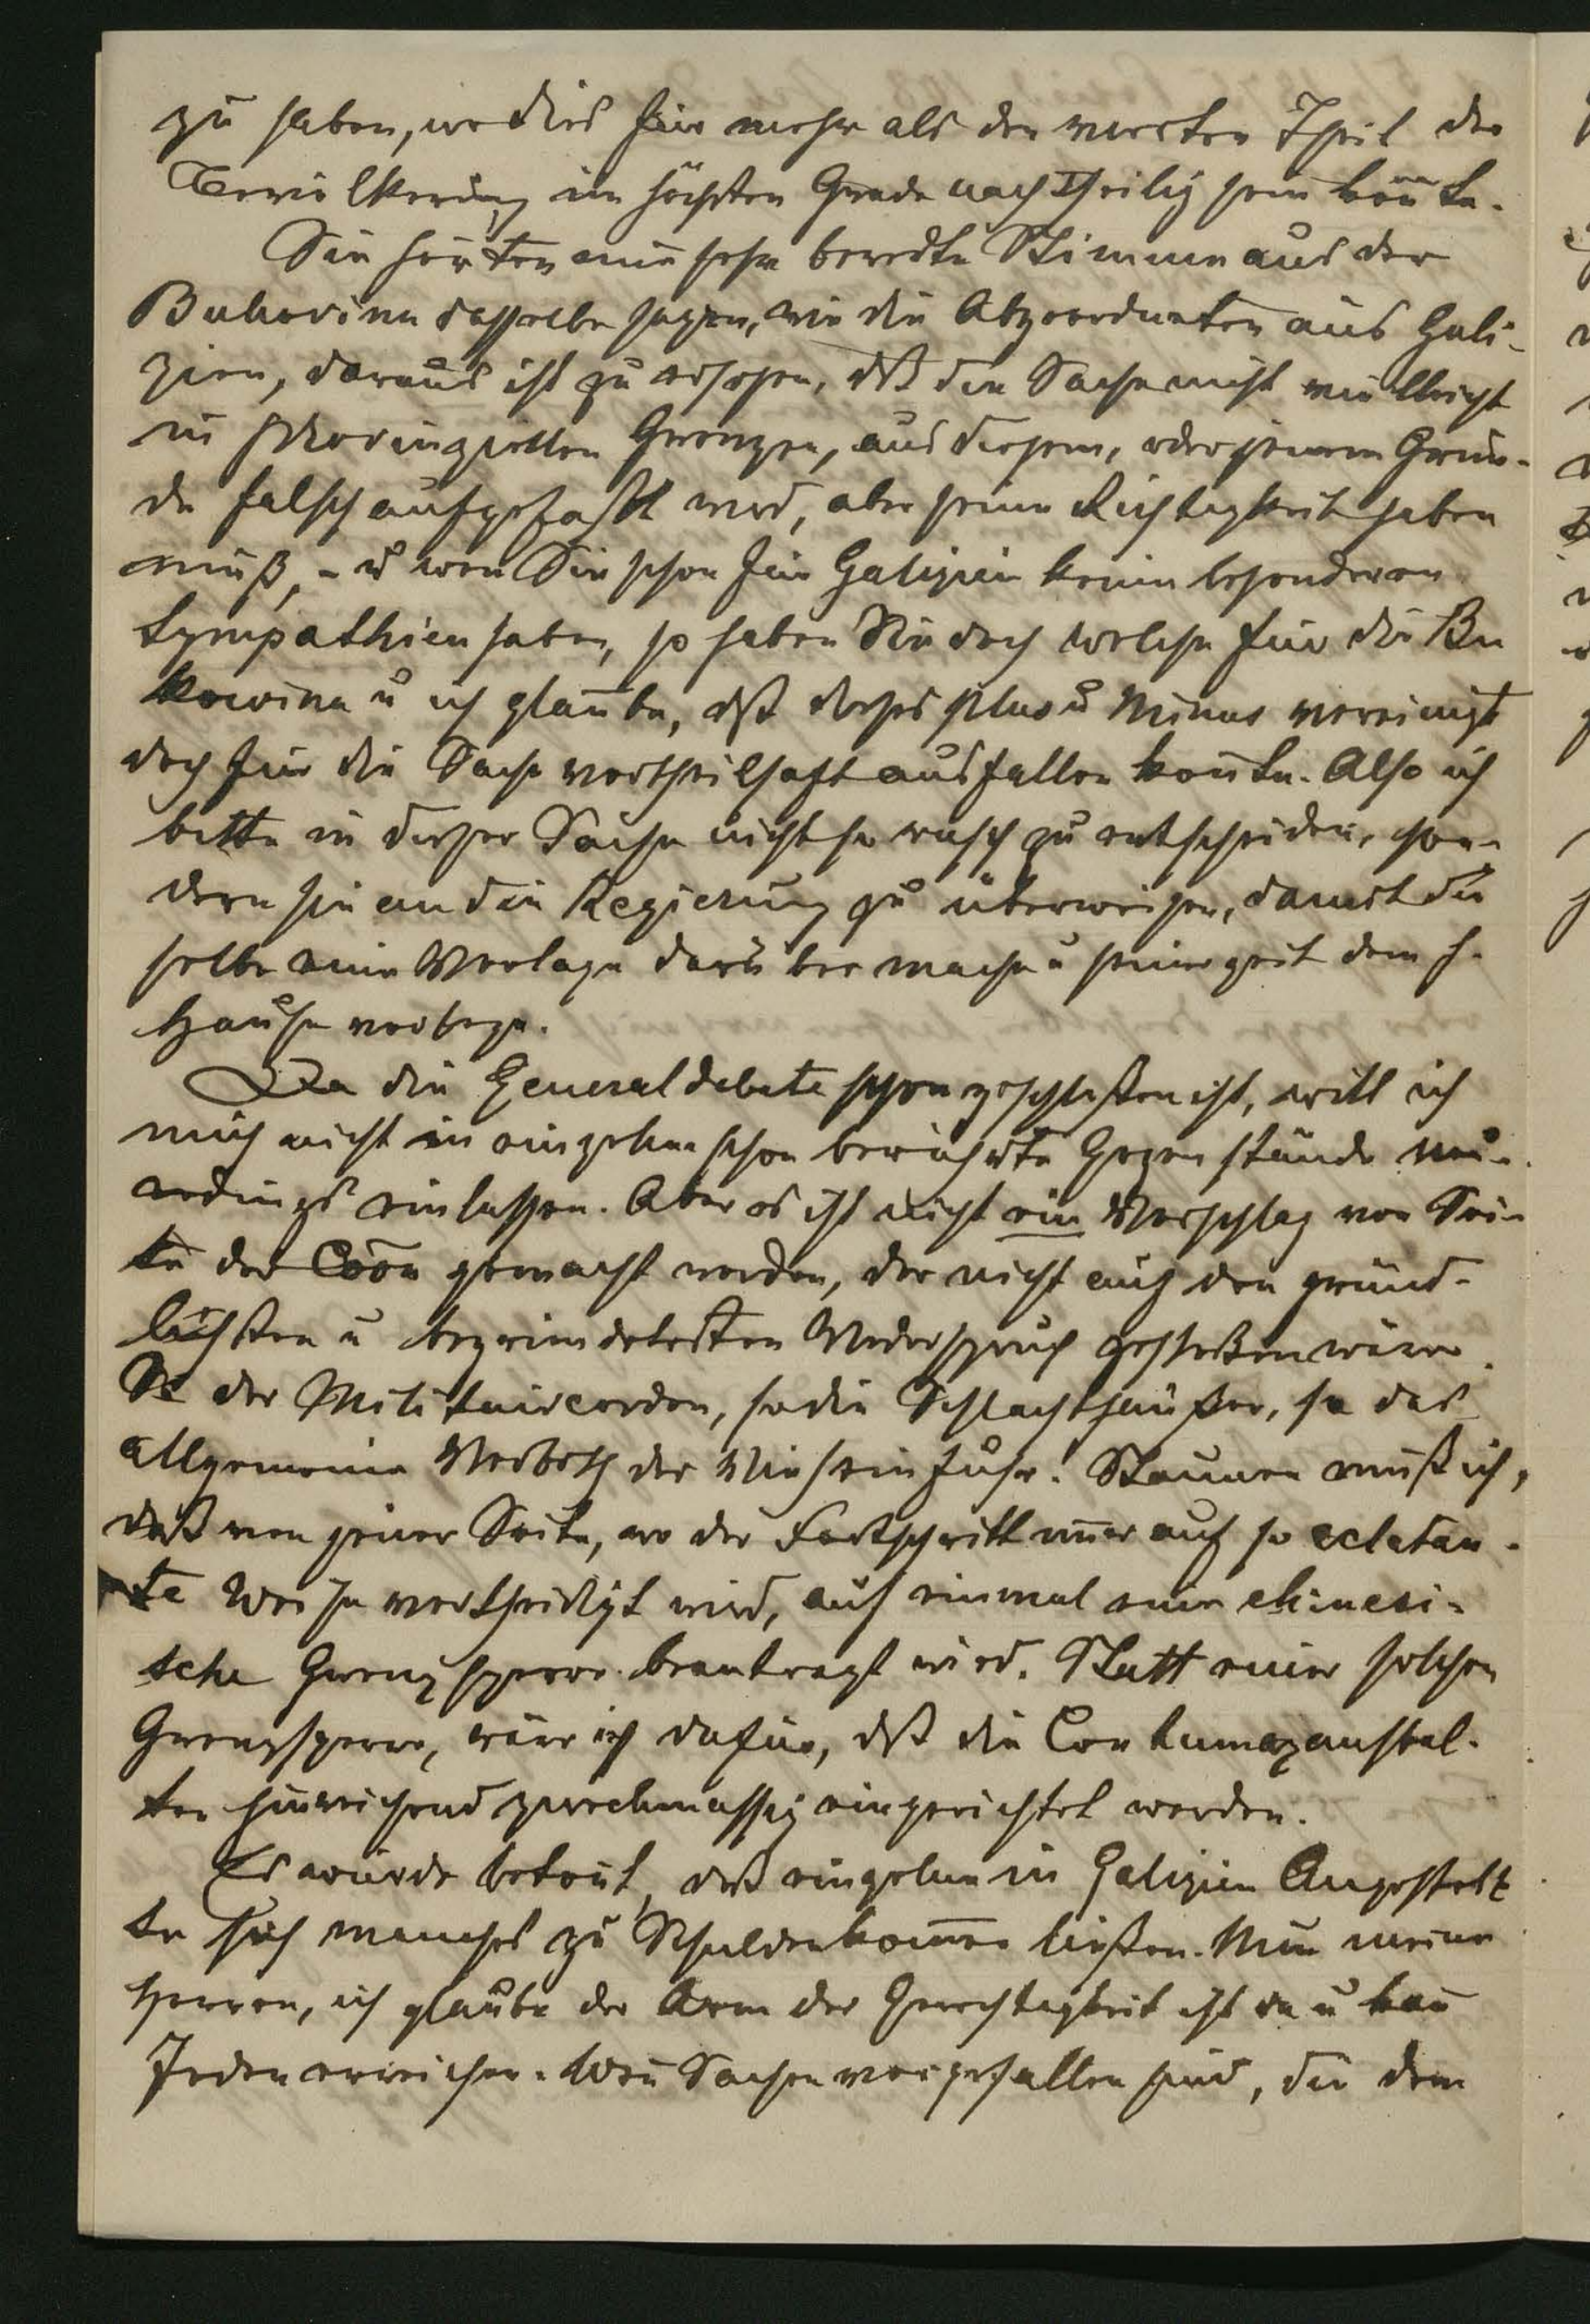 zu haben, wo dies für mehr als den vierten Theil der
Bevölkerung im höchsten Grade nachtheilig sein kön̄te.
Sie hörten eine sehr beredte Stimme aus der
Bukovina dasselbe sagen, wie die Abgeordneten aus Gali-
zien, daraus ist zu ersehen, dß die Sache nicht vielleicht
in provinziellen Grenzen, aus diesem, oder jenem Grun-
de falsch aufgefaßt wird, aber seine Richtigkeit haben
muß, - u wen̄ Sie schon für Galizien keine besonderen
Sympathien haben, so haben Sie doch welche für die Bu
kowina u ich glaube, dß dieses plus u Minus vereinigt
doch für die Sache vortheilhaft ausfallen kön̄te. Also ich
bitte in dieser Sache nicht so rasch zu entscheiden, son-
dern sie an die Regierung zu überweisen, damit die
selbe eine Vorlage darüber mache u seinerzeit dem h.
Hause vorlege.
Da die Generaldebatte schon geschloßen ist, will ich
mich nicht in einzelne schon berührte Gegenstände neu-
erdings einlassen. Aber es ist nicht ein Vorschlag von Sei-
te der Com̄on gemacht worden, der nicht auf den gründ-
lichsten u begründetesten Widerspruch gestoßen wäre.
So der Militaircordon, so die Schlachthäuser, so das
allgemeine Verboth der Vieheinfuhr! Staunen muß ich,
daß von jener Seite, wo der Fortschritt im̄er auf so eclatan-
te Weise vertheidigt wird, auf einmal eine chinesi-
sche Grenzsperre beantragt wird. Statt einer solchen
Grenzsperre, wäre ich dafür, dß die Contumazanstal-
ten hinreichend zweckmässig eingerichtet werden.
Es wurde betont, daß einzelne in Galizien Angestell
te sich manches zu Schulden kom̄en ließen. Nun meine
Herren, ich glaube der Arm der Gerechtigkeit ist da u kan̄
Jeden erreichen. Wen̄ Sachen vorgefallen sind, die dem